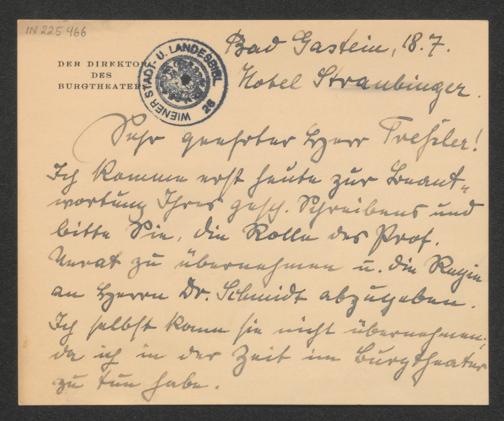 IN 225 466
DER DIREKTOR
DES
BURGTHEATERS
WIENER STADT- U. LANDESBIBL.
26
Bad Gastein, 18.7.
Hotel Straubinger.
Sehr geehrter Herr Treßler!
Ich komme erst heute zur Beant-
wortung Ihres gesch. Schreibens und
bitte Sie, die Rolle des Prof.
Unrat zu übernehmen u. die Regie
an Herrn Dr. Schmidt abzugeben.
Ich selbst kann sie nicht übernehmen,
da ich in der Zeit im Burgtheater
zu tun habe.